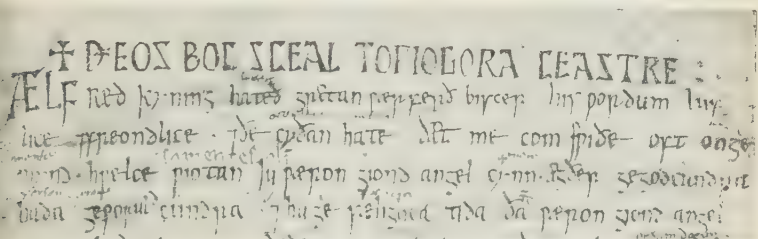 ✝ ÐEOS BOC SCEAL TO ǷIOGORA CEASTRE
ÆLFRED kyning hateð gretan ƿærferð biscep his ƿordum luf
lice ⁊ freondlice ⁊ ðe cyðan hate ðæt me com sƿiðe oft on ge
mynd hƿelce ƿiotan iu ƿæron giond angel cynn ægðer ge godcundra
hada ge ƿoruldcundra ⁊ hu gesæliglica tida ða ƿæron giond angel